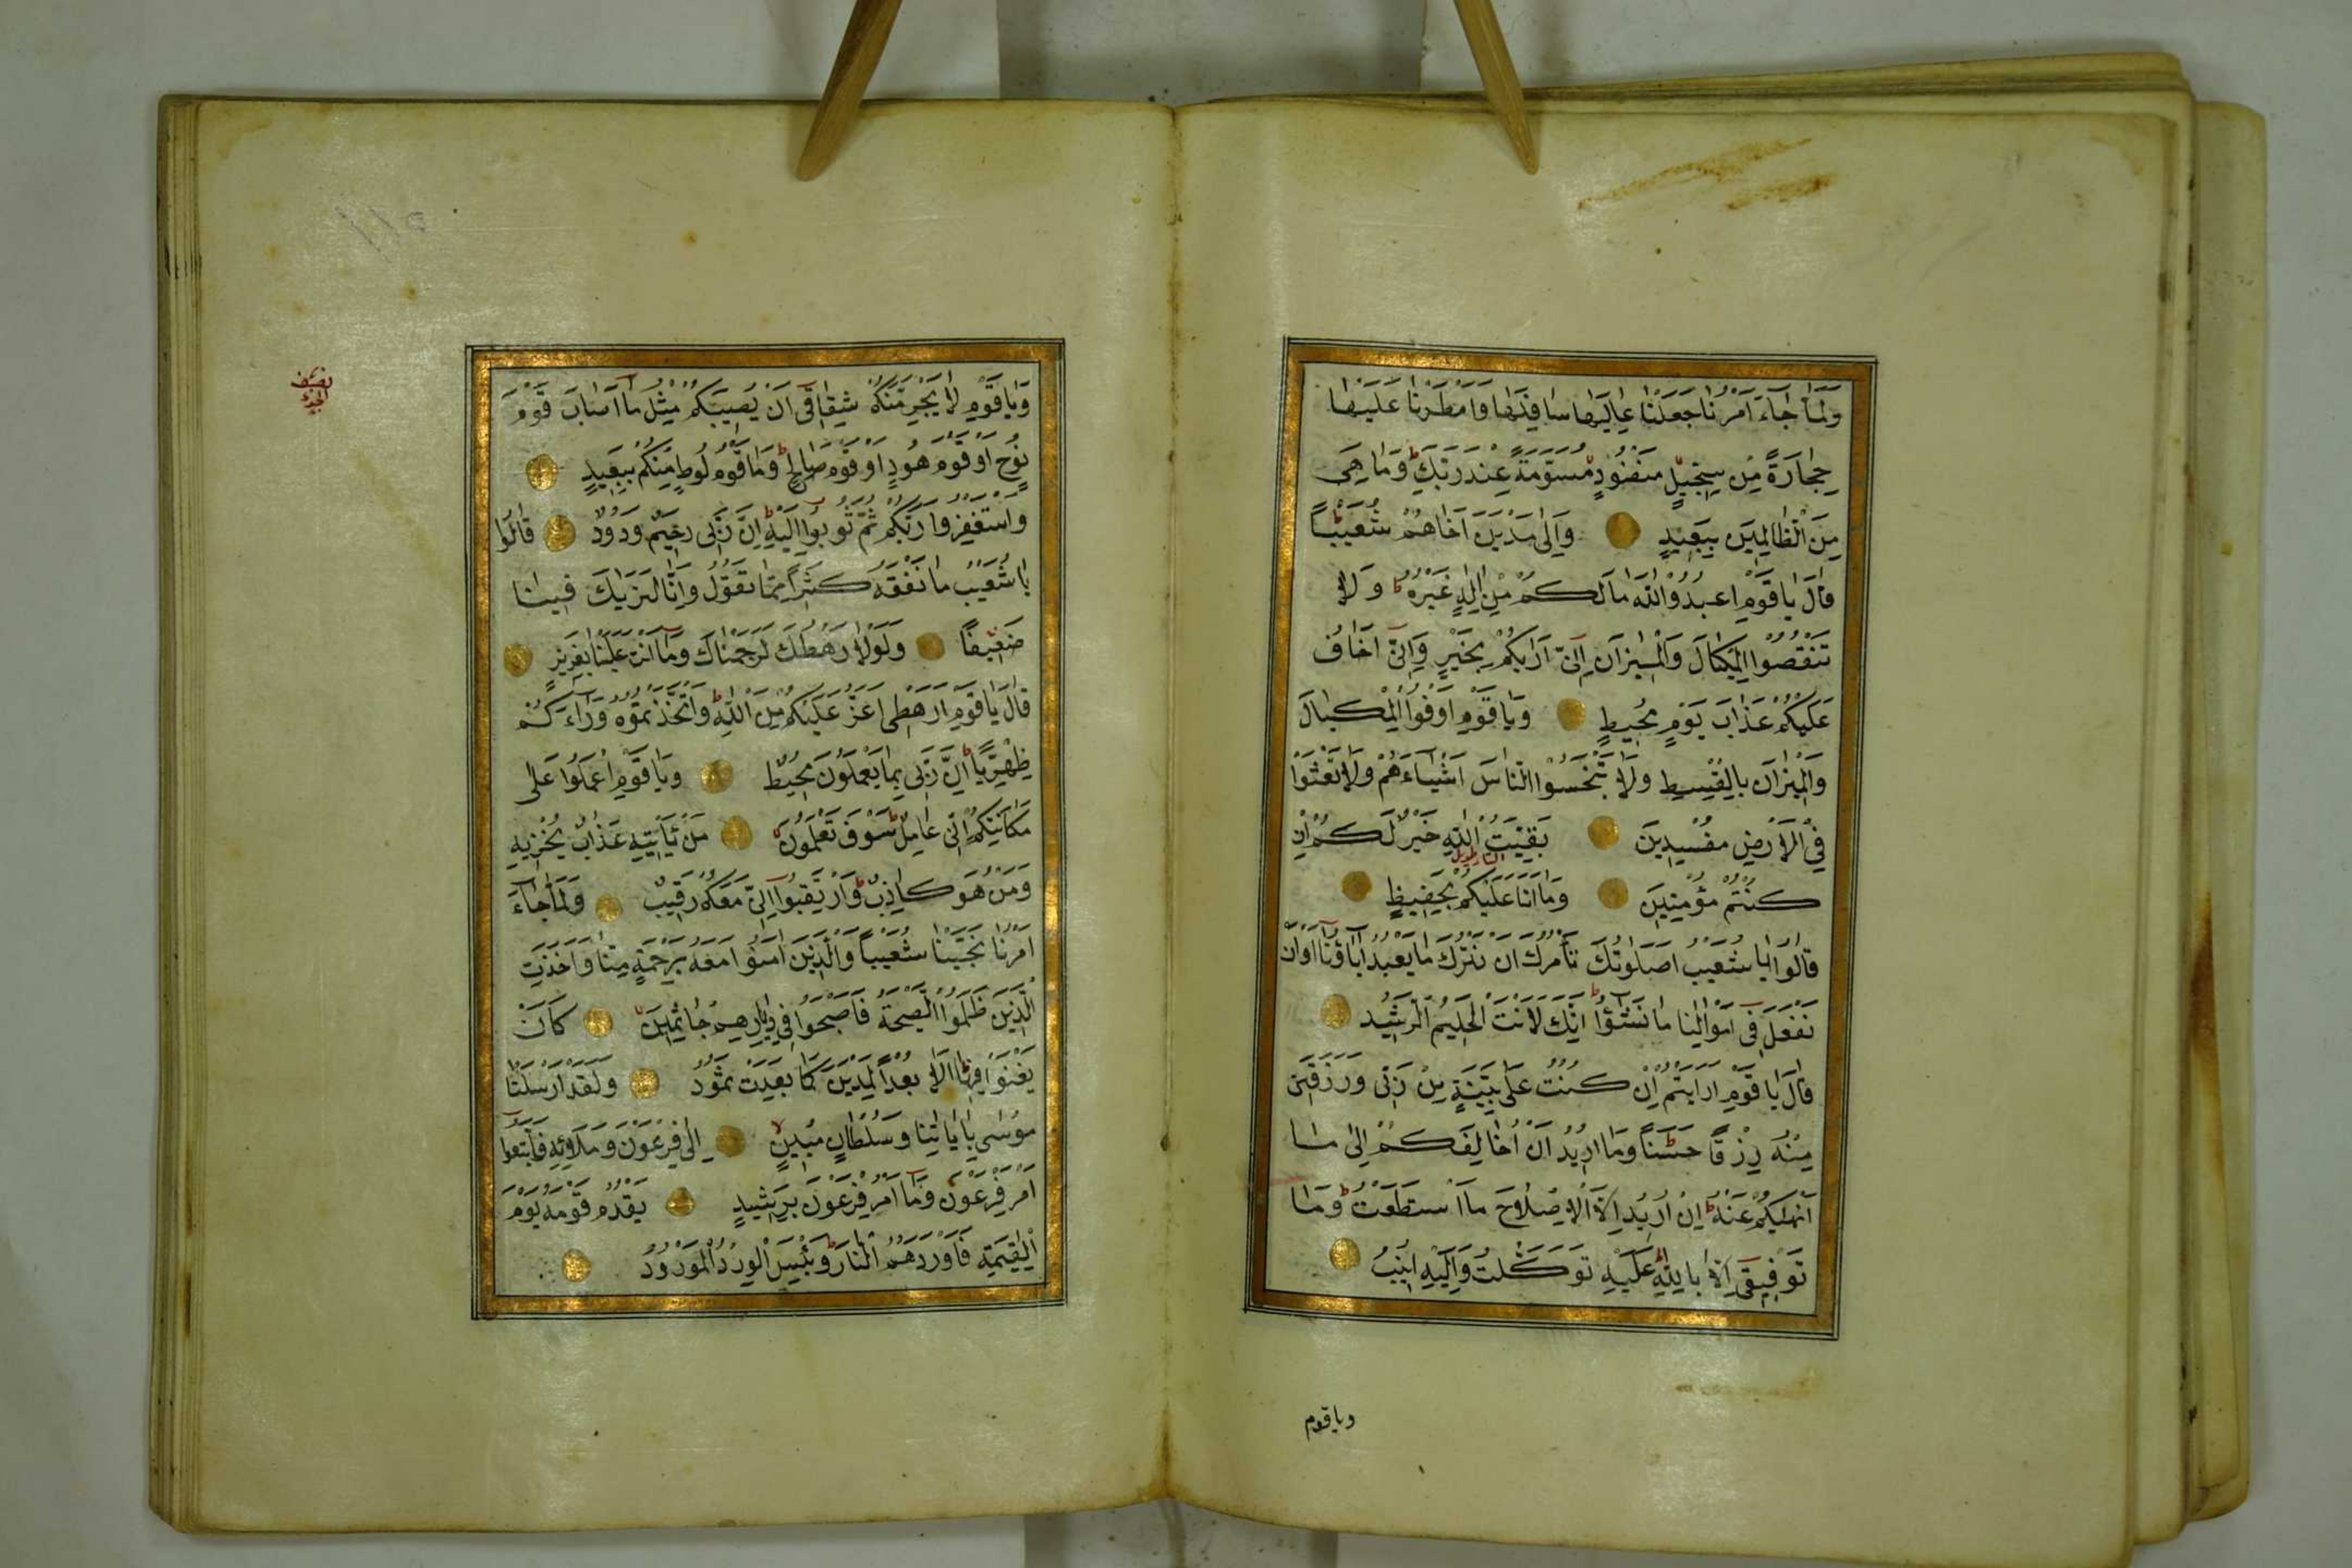 ولما جاء امرنا جعلنا عاليها سافلها وامطرنا عليها
حجارة من سجيل منضود مسومة عند ربك وما هي
من الظالمين ببعيد والى مدين اخاهم شعيبا
قال يا قوم اعبدوا الله ما لكم من اله غيره ولا
تنقصوا المكيال والميزان انى اراكم بخير وانى اخاف
عليكم عذاب يوم محيط ويا قوم اوفوا المكيال
والميزان بالقسط ولا تبخسوا الناس اشياءهم ولا تعثوا
في الارض مفسدين بقيت الله خير لكم ان
كنتم مؤمنين وما انا عليكم بحفيظ
قالوا يا شعيب اصلوتك تأمرك ان نترك ما يعبد اباؤنا او ان
نفعل في اموالنا ما نشؤا انك لانت الحليم الرشيد
قال يا قوم ارايتم ان كنت على بينة من ربى ورزقنى
منه رزقا حسنا وما اريد ان اخالفكم الى ما
انهيكم عنه ان اريد الا الاصلاح ما استطعت وما
توفيقى الا بالله عليه توكلت واليه انيب
ويا قوم
ويا قوم لا يجرمنكم شقاقى ان يصيبكم مثل ما اصاب قوم
نوح او قوم هود او قوم صالح وما قوم لوط منكم ببعيد
واستغفروا ربكم ثم توبوا اليه ان ربى رحيم ودود قالوا
يا شعيب ما نفقه كثيرا مما تقول وانا لنريك فينا
ضعيفا ولولا رهطك لرجمناك وما انت علينا بعزيز
قال يا قوم ارهطى اعز عليكم من الله واتخذتموه وراءكم
ظهريا ان ربى بما يعملون محيط ويا قوم اعملوا على
مكانتكم انى عامل سوف تعلمون من يأتيه عذاب يخزيه
ومن هو كاذب وارتقبوا انى معكم رقيب ولما جاء
امرنا نجينا شعيبا والذين امنوا معه برحمة منا واخذت
الذين ظلموا الصيحة فاصبحوا في ديارهم جاثمين كان
يغنوا فيها الا بعدا لمدين كما بعدت ثمود ولقد ارسلنا
موسى باياتنا وسلطان مبين الى فرعون وملائه فاتبعوا
امر فرعون وما امر فرعون برشيد يقدم قومه يوم
القيمة فاوردهم النار وبئس الورد المورود
نصف
الجزء
١١٥